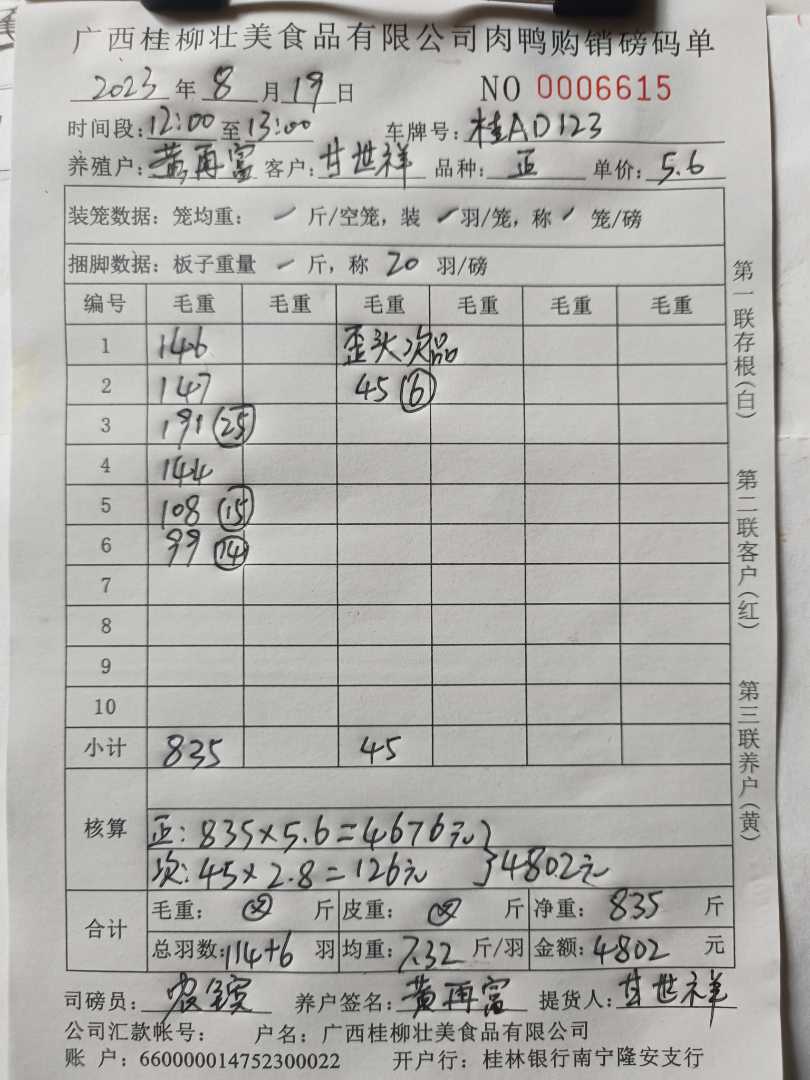 广西桂柳壮美食品有限公司肉鸭购销磅码单
2023年8月19日 NO 0006615
时间段:12:00至13:00 车牌号:桂AD123
养殖户:黄再富 客户:甘世祥 品种:正 单价:5.6
装笼数据:笼均重: / 斤/空笼,装 / 羽/笼,称 / 笼/磅
捆脚数据:板子重量 / 斤,称 20 羽/磅
编号 毛重 毛重 毛重 毛重 毛重 毛重
1 146 歪头次品
2 147 45 (6)
3 191 (25)
4 144
5 108 (15)
6 99 (14)
7
8
9
10
小计 835 45
核算
正:835×5.6=4676元}
次:45×2.8=126元 }4802元
合计
毛重: 斤 皮重: 斤 净重:835斤
总羽数:114+6羽 均重:7.32斤/羽 金额:4802元
司磅员: 养户签名:黄再富 提货人:甘世祥
公司汇款帐号: 户名:广西桂柳壮美食品有限公司
账 户:660000014752300022 开户行:桂林银行南宁隆安支行
第一联存根(白)
第二联客户(红)
第三联养户(黄)